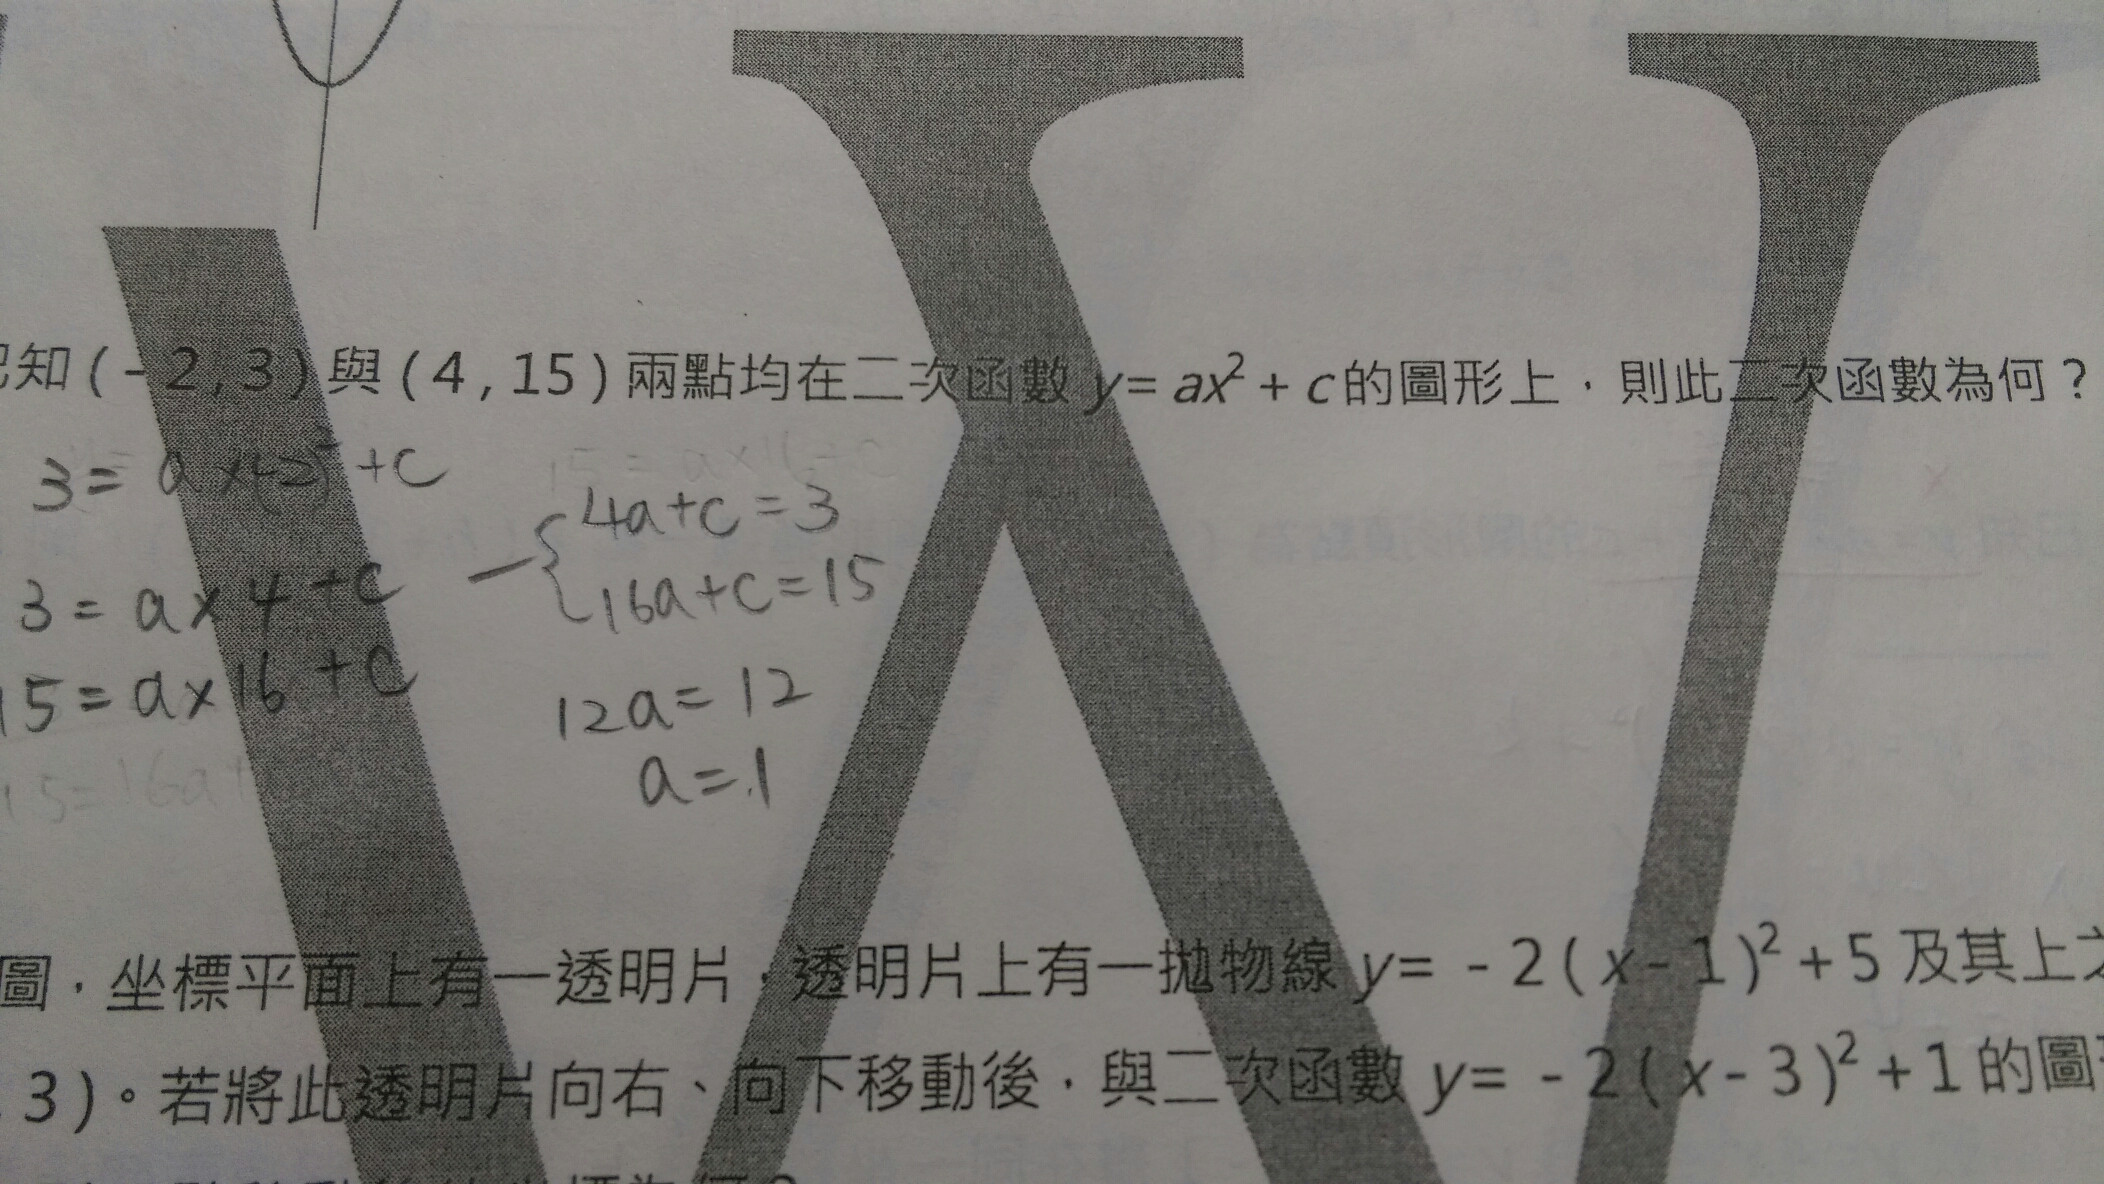 知(-2,3)與(4,15)兩點均在二次函數 y=ax²+c的圖形上，則此二次函數為何？
3=a×(-2)²+c
3=a×4+c
15=a×16+c
15=16a+
15=a×16+c
4a+c=3
16a+c=15
12a=12
a=1
圖，坐標平面上有一透明片，透明片上有一拋物線 y=-2(x-1)²+5及其上之
3)。若將此透明片向右、向下移動後，與二次函數 y=-2(x-3)²+1的圖